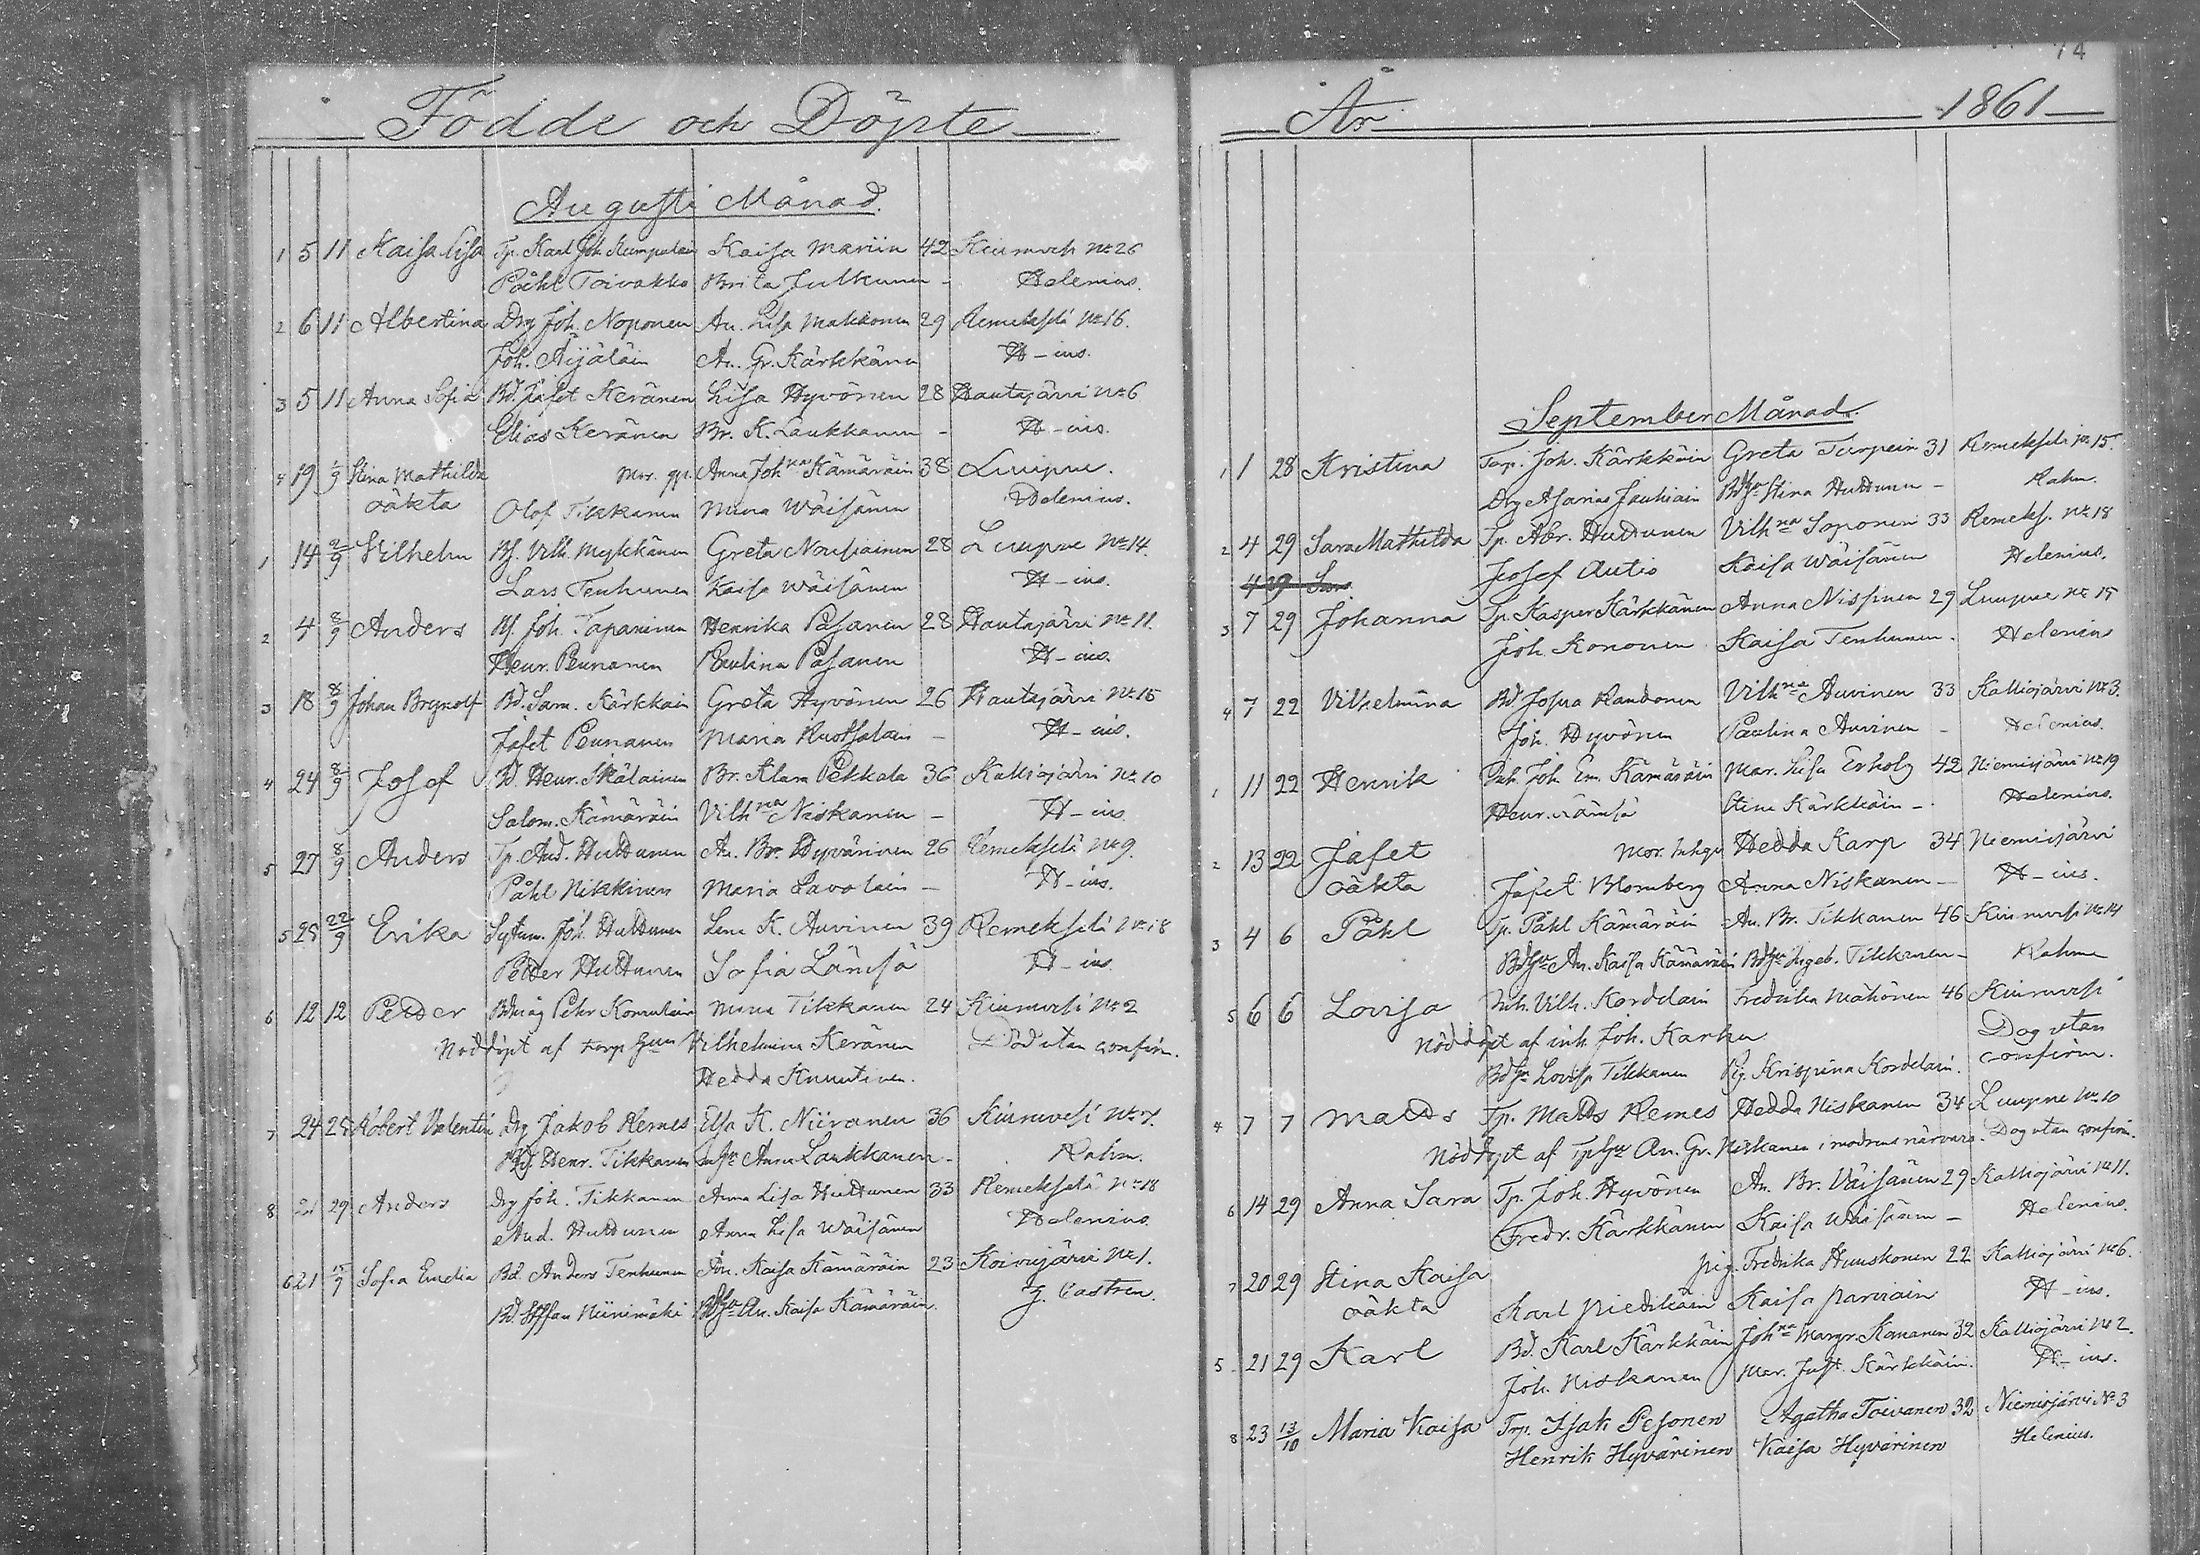 Födde och Döpte
Augusti Månad.
1 5 11 Kaisa Lisa Tp. Karl Joh. Kumpulain Kaisa Mariin 42 Kiuruvesi No 26
Påhl Toivakka Brita Julkunen - Helenius.
2 6 11 Albertina Drg Joh. Noponen An. Lisa Makkonen 29 Remeksela No 16.
Joh. Äijäläin An. Gr. Kärkkänen H-ius.
3 5 11 Anna Sofia Bd. Jafet Keränen Lisa Hyvönen 28 Hautajärvi No 6
Elias Keränen Br. K. Laukkanen - H-ius.
4 19 1/9 Stina Mathilda Mor. gp. Anna Johna Kämäräin 38 Luupue.
oäkta Olof Tikkanen Mina Wäisänen Helenius.
1 14 2/9 Vilhelm Bf. Vilh. Mykkänen Greta Nousiainen 28 Luupue No 14.
Lars Tenhunen Kaisa Wäisänen H-ius.
2 4 8/9 Anders Bf. Joh. Tapaninen Henrika Pasanen 28 Hautajärvi No 11.
Henr. Pennanen Paulina Pasanen H-ius.
3 18 8/9 Johan Brynolf Bd. Sam. Kärkkain Greta Hyvönen 26 Hautajärvi No 15
Jafet Pennanen Maria Ruotsalain - H-ius.
4 24 8/9 Josef Bd. Henr. Skälainen Br. Klara Pekkala 36 Kalliojärvi No 10
Salom. Kämäräin Vilhna Niskanen - H-ius.
5 27 8/9 Anders Tp. And. Huttunen An. Br. Hyvärinen 26 Remekselä No 9.
Påhl Nikkinen Maria Savolain - H-ius.
5 25 22/9 Erika Sytm. Joh. Huttunen Lena K. Auvinen 39 Remekselä No 18
Petter Huttunen Sofia Länsä H-ius.
6 12 12 Petter Bdmåg Petr Kornulain Mina Tikkanen 24 Kiuruvesi No 2
Nöddöpt af torp Gun Vilhelmina Keränen Död utan confirm.
Hedda Knuutinen.
7 24 25 Robert Valentin Drg Jakob Remes Elsa K. Niiranen 36 Kiuruvesi No 7.
Henr. Tikkanen Anna Laukkanen - Rahm.
8 21 29 Anders Drg Joh. Tikkanen Anna Lisa Huttunen 33 Remekselä No 18
And. Huttunen Anna Lisa Wäisänen Helenius.
6 21 15/9 Sofia Emelia Bd. Anders Tenhunen An. Kaisa Kämäräin 23 Koivujärvi No 1.
Bd. Steffan Niinimäki An. Kaisa Kämäräin. J. Castrén.
74
År 1861
September Månad.
1 1 28 Kristina Torp. Joh. Kärkkäin Greta Turpein 31 Remekselä No 15.
Drg Asarias Jauhiain Stina Huttunen - Rahm.
2 4 29 Sara Mathilda Tp. Abr. Huttunen Vilhna Soponen 33 Remeks. No 18
4 29 Sara Josef Autio Kaisa Wäisänen Helenius.
3 7 29 Johanna Tp. Kasper Kärkkänen Anna Nissinen 29 Luupue No 15
Joh. Kononen Kaisa Tenhunen. Helenius
4 7 22 Vilhelmina Bd Josua Raudonen Vilhna Auvinen 33 Kalliojärvi No 3.
Joh. Hyvönen Paulina Auvinen - Helenius.
1 11 22 Henrik Inh. Joh. Em. Kämäräin Mar. Lisa Erholz 42 Niemisjärvi No 19
Henr. Länsä Stina Kärkkäin - Helenius.
2 13 22 Jafet Mor. Inhgv Hedda Karp 34 Niemisjärvi
oäkta Jafet Blomberg Anna Niskanen - H-ius.
3 4 6 Påhl Tp. Påhl Kämäräin An. Br. Tikkanen 46 Kiuruvesi No 14
An. Kaisa Kämäräin Ingeb. Tikkanen - Rahm
5 6 6 Lovisa Inh. Vilh. Kordelain Fredrika Mähönen 46 Kiuruvesi
Nöddöpt af inh. Joh. Karhu Dog utan
Lovisa Tikkanen Pig. Krispina Kordelain. confirm.
4 7 7 Matts Tp. Matts Remes Hedda Niskanen 34 Luupue No 10
Nöddöpt af Tphu An. Gr. Niskanen i modrens närvaro. Dog utan confirm.
6 14 29 Anna Sara Tp. Joh. Hyvönen An. Br. Väisänen 29 Kalliojärvi No 11.
Fredr. Kärkkänen Kaisa Wäisänen - Helenius.
7 20 29 Stina Kaisa pig. Fredrika Huuskonen 22 Kalliojärvi No 6.
oäkta Karl Piedikäin Kaisa Parviain H-ius.
5 21 29 Karl Bd. Karl Kärkkäin Johna Margr. Kananen 32 Kalliojärvi No 2.
Joh. Niskanen Mar. Just. Kärkkäin. H-ius.
8 23 13/10 Maria Kaisa Trp. Isak Pesonen Agatha Toivanen 32 Niemisjärvi No 3
Henrik Hyvärinen Kaisa Hyvärinen Helenius.